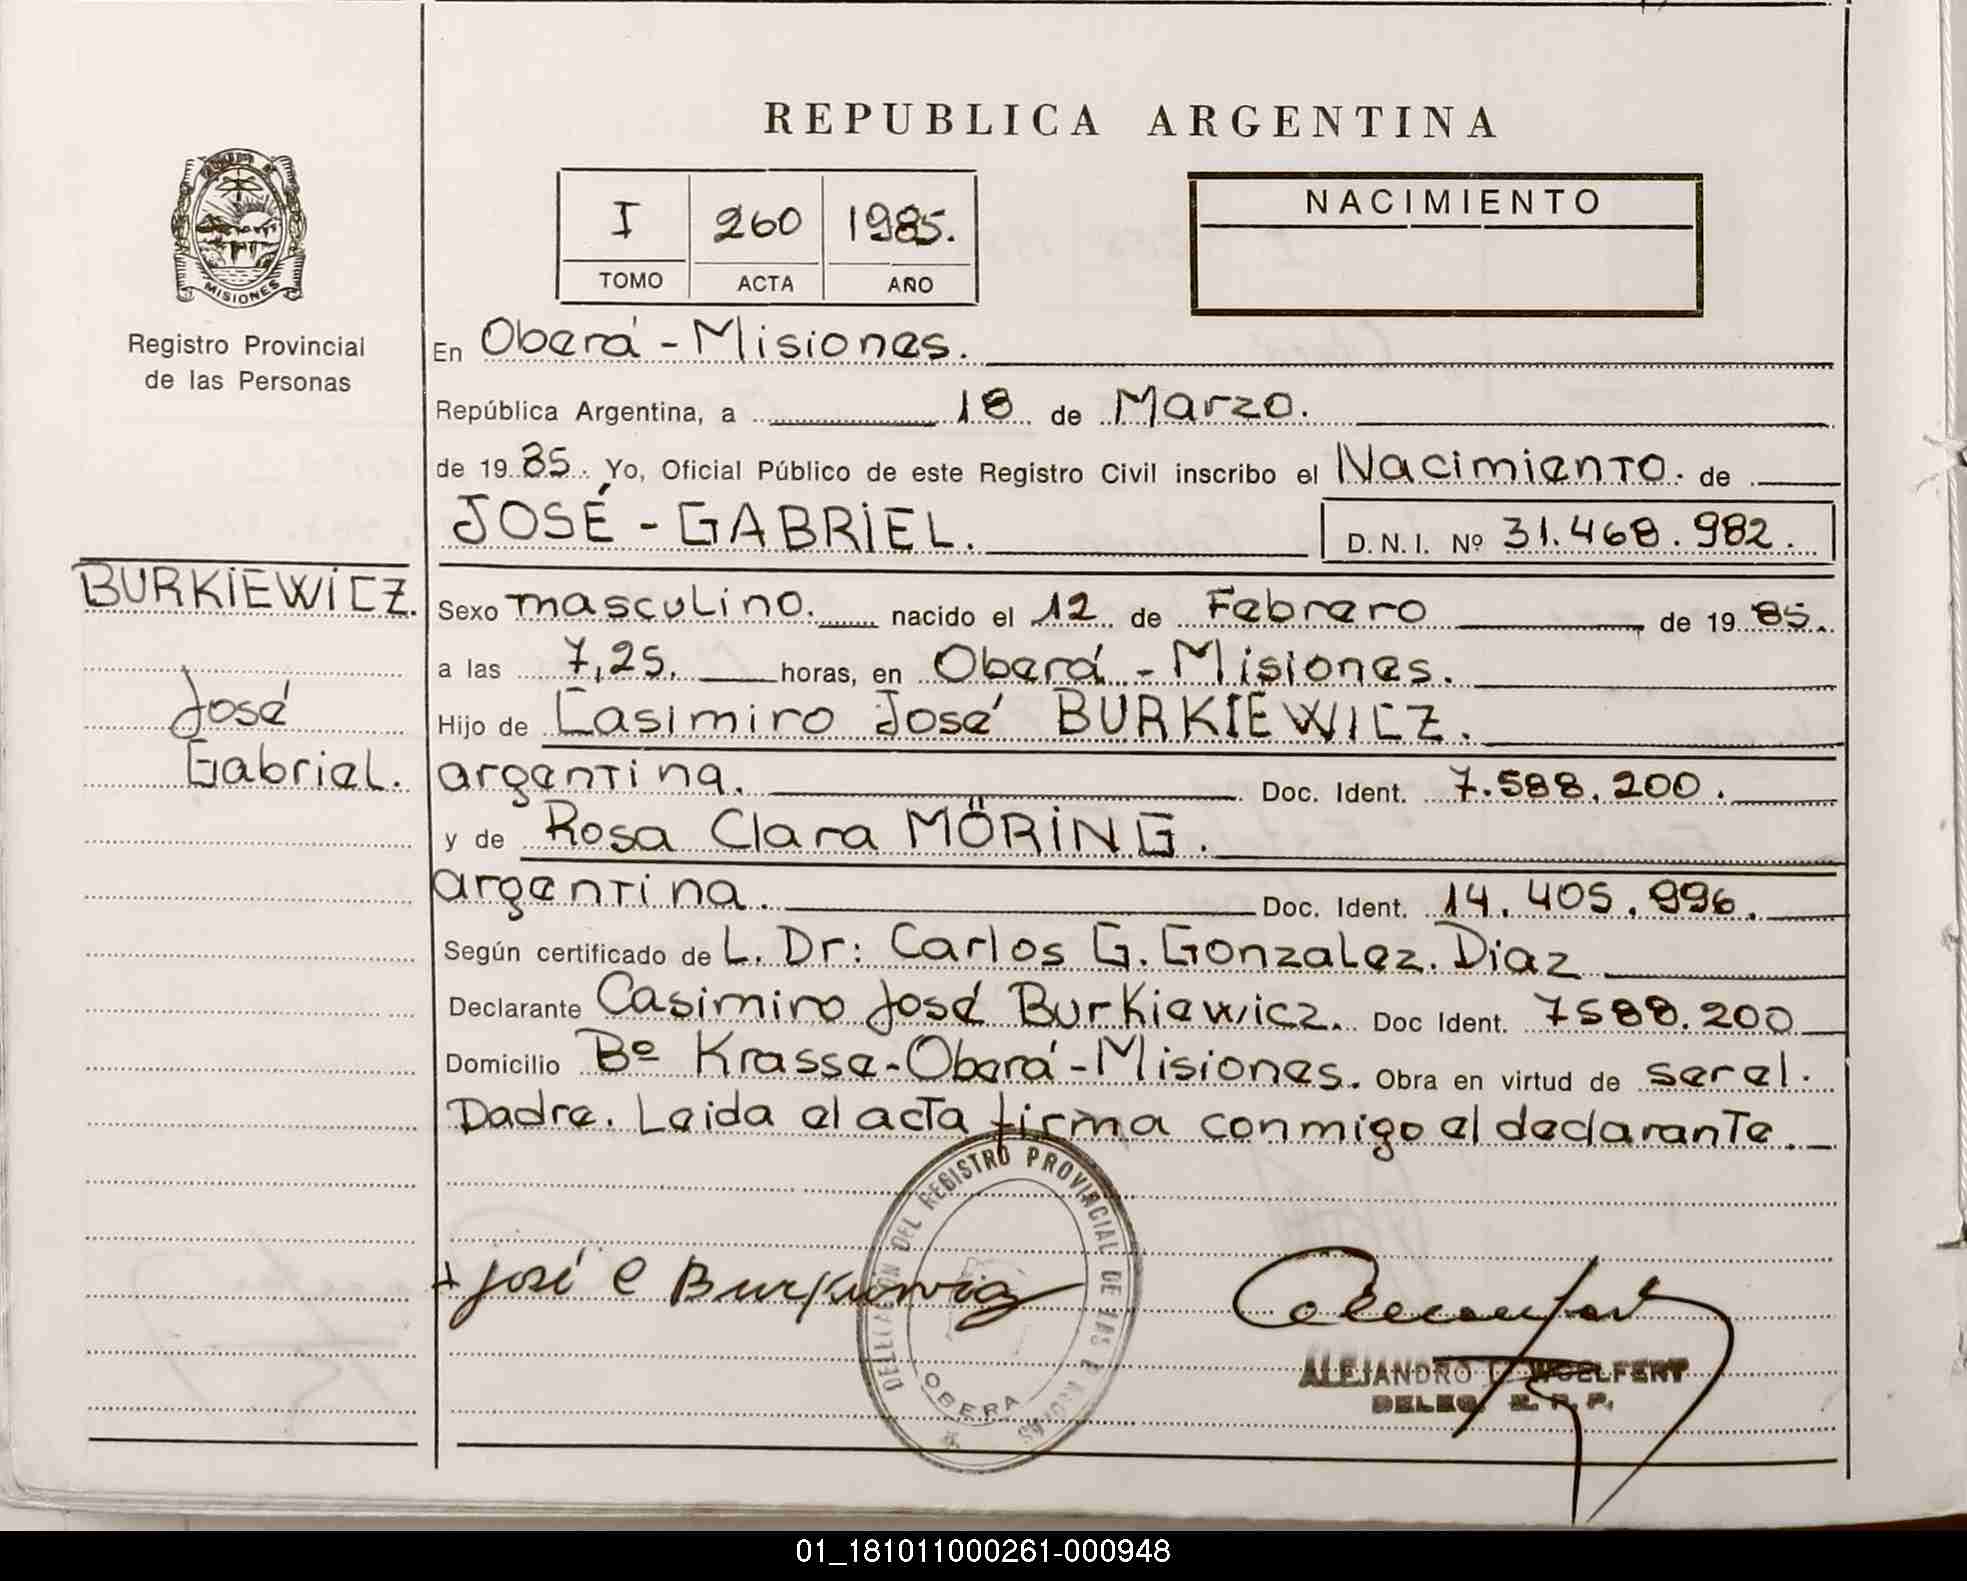 REPUBLICA ARGENTINA
I 260 1985.
TOMO ACTA AÑO
NACIMIENTO
MISIONES
Registro Provincial
de las Personas
En Oberá - Misiones.
República Argentina, a 18 de Marzo.
de 19 85. Yo, Oficial Público de este Registro Civil inscribo el Nacimiento. de
JOSÉ - GABRIEL. D.N.I. Nº 31.468.982.
BURKIEWICZ.
José
Gabriel.
Sexo masculino. nacido el 12 de Febrero de 19 85.
a las 7,25. horas, en Oberá - Misiones.
Hijo de Casimiro José BURKIEWICZ.
argentina. Doc. Ident. 7.588.200.
y de Rosa Clara MÖRING.
argentina. Doc. Ident. 14.405.996.
Según certificado de L. Dr: Carlos G. Gonzalez. Diaz
Declarante Casimiro José Burkiewicz. Doc Ident. 7588.200
Domicilio Bº Krasse-Oberá-Misiones. Obra en virtud de ser el.
Padre. Leida el acta firma conmigo el declarante.
José C Burkiewicz
DELEGACION DEL REGISTRO PROVINCIAL DE LAS PERSONAS
OBERA
ALEJANDRO WOELFERT
DELEG. R. P. P.
01_181011000261-000948